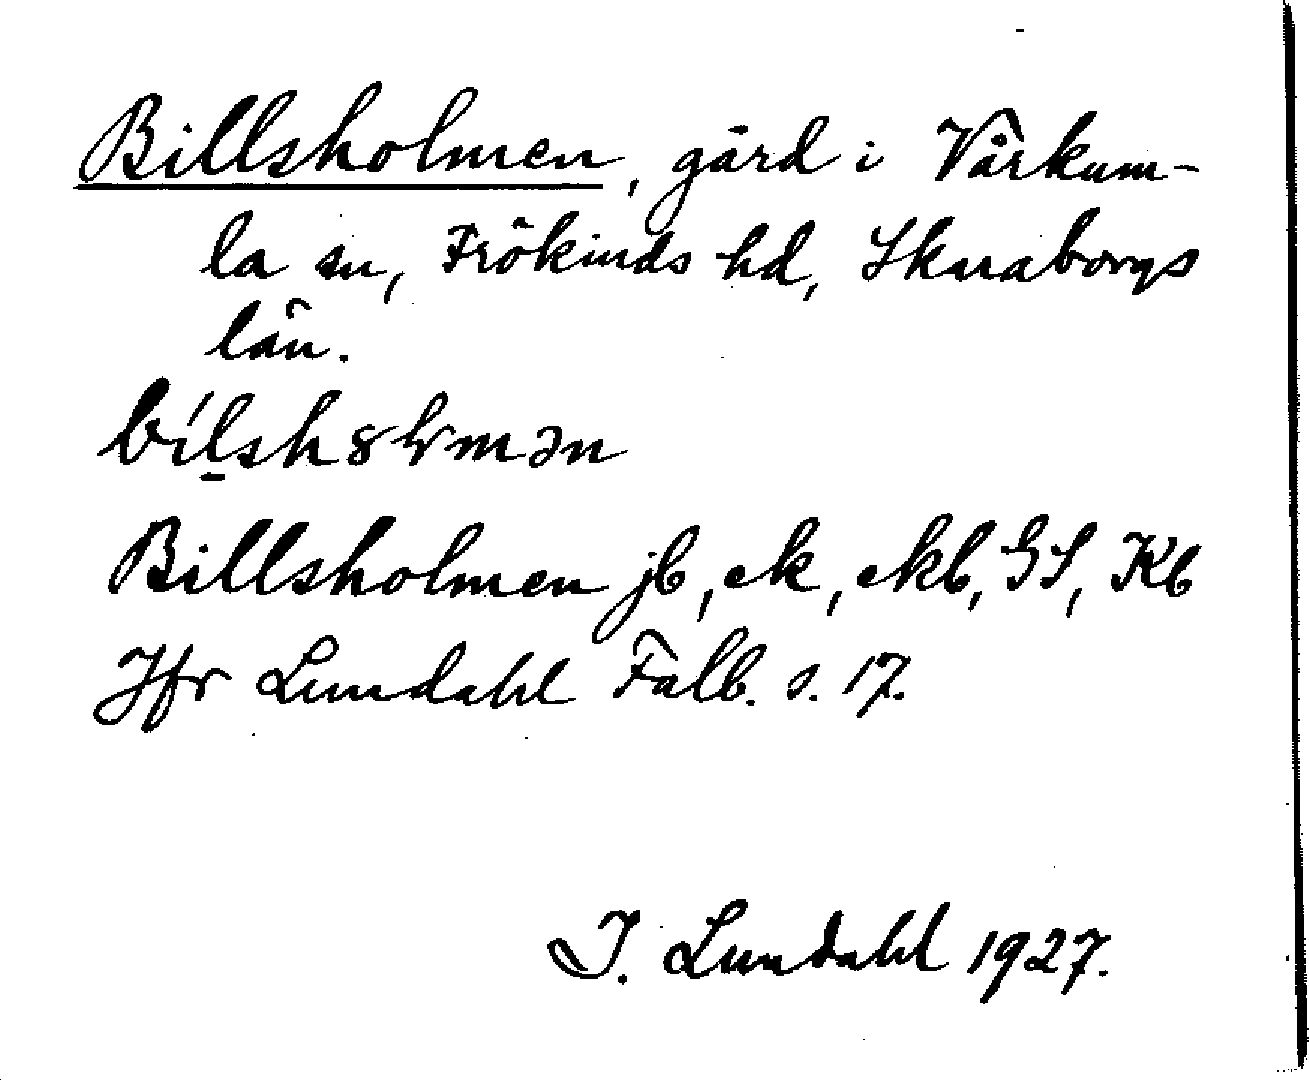 Billsholmen, gård i Vårkum-
la sn, Frökinds hd, Skaraborgs
län.
Billsholmen jb, ek, ekb, GS, Kb
Jfr Lundahl Falb. s. 17.
I. Lundahl 1927.